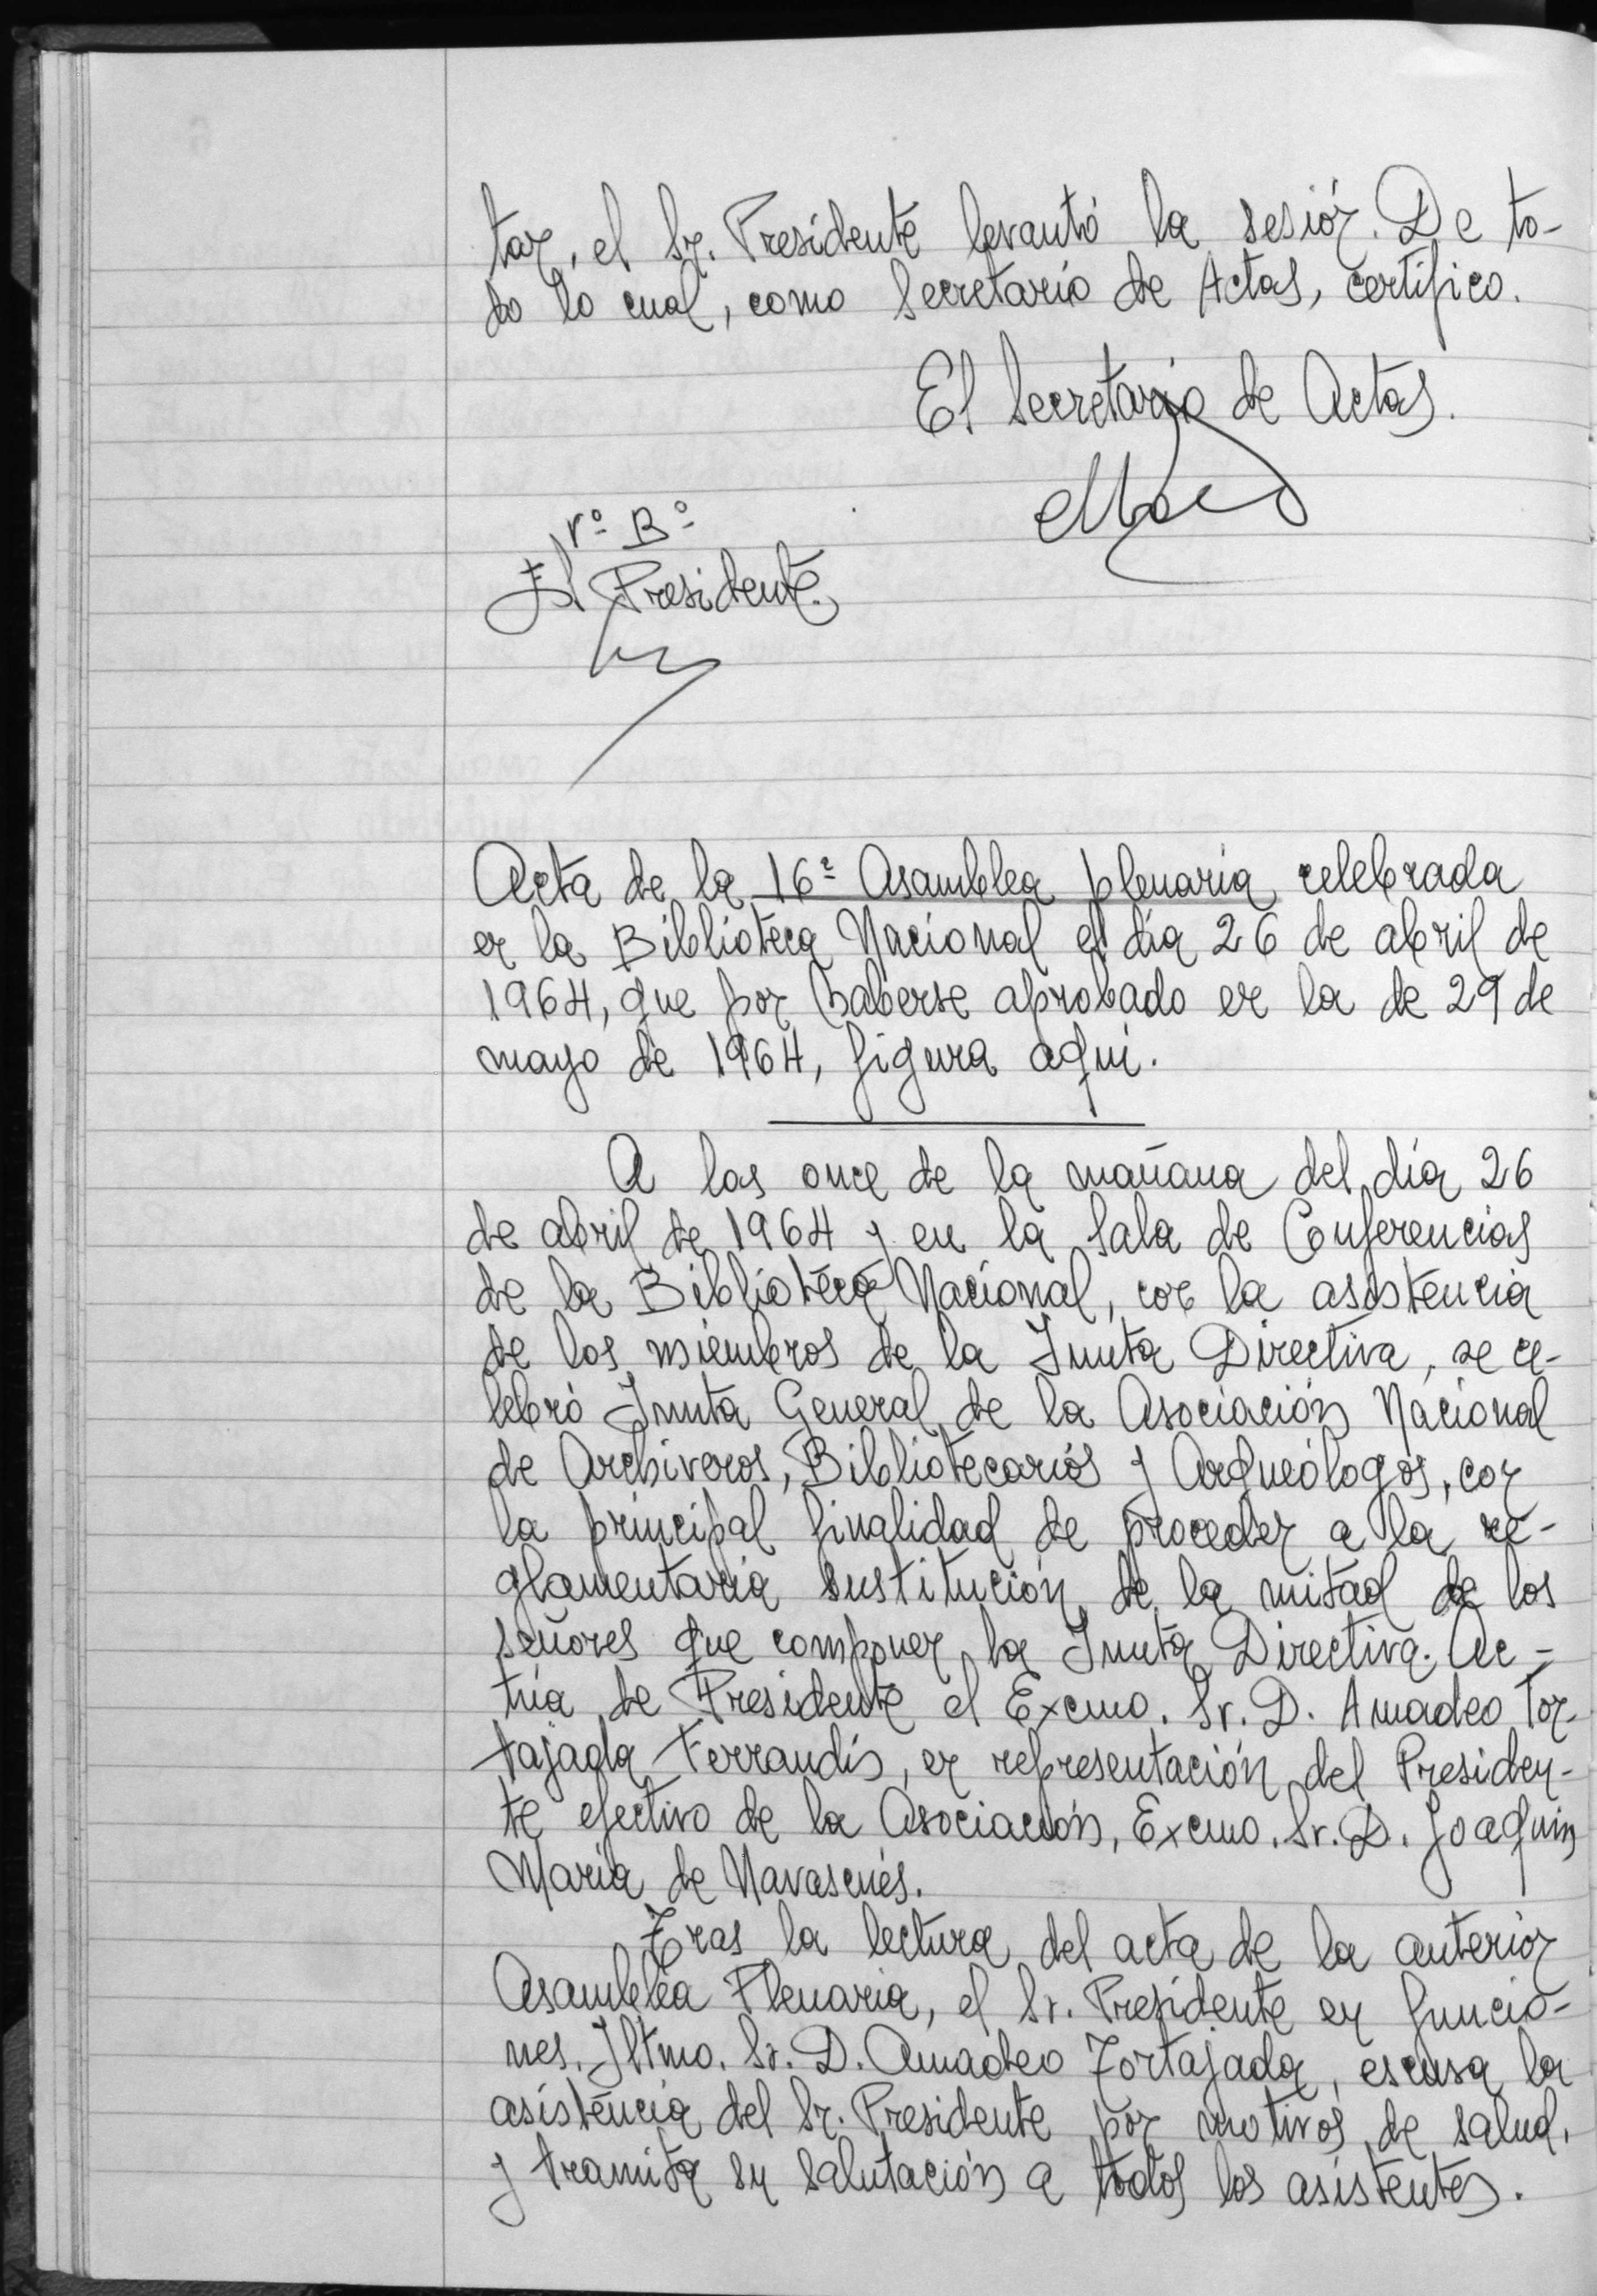 tar, el Sr. Presidente levantó la sesión. De to-
do lo cual, como Secretario de Actas, certifico.
El Secretario de Actas.
Vº Bº
El Presidente.
Acta de la 16ª Asamblea plenaria celebrada
en la Biblioteca Nacional el día 26 de abril de
1964, que por haberse aprobado en la de 29 de
mayo de 1964, figura aquí.
A las once de la mañana del día 26
de abril de 1964 y en la Sala de Conferencias
de la Biblioteca Nacional, con la asistencia
de los miembros de la Junta Directiva, se ce-
lebró Junta General de la Asociación Nacional
de Archiveros, Bibliotecarios y Arqueólogos, con
la principal finalidad de proceder a la re-
glamentaria sustitución de la mitad de los
señores que componen la Junta Directiva. Ac-
túa de Presidente el Excmo. Sr. D. Amadeo Tor-
tajada Ferrandis, en representación del Presiden-
te efectivo de la Asociación, Excmo. Sr. D. Joaquín
María de Navascués.
Tras la lectura del acta de la anterior
Asamblea Plenaria, el Sr. Presidente en funcio-
nes, Iltmo. Sr. D. Amadeo Tortajada, escusa la
asistencia del Sr. Presidente por motivos de salud,
y tramita su salutación a todos los asistentes.